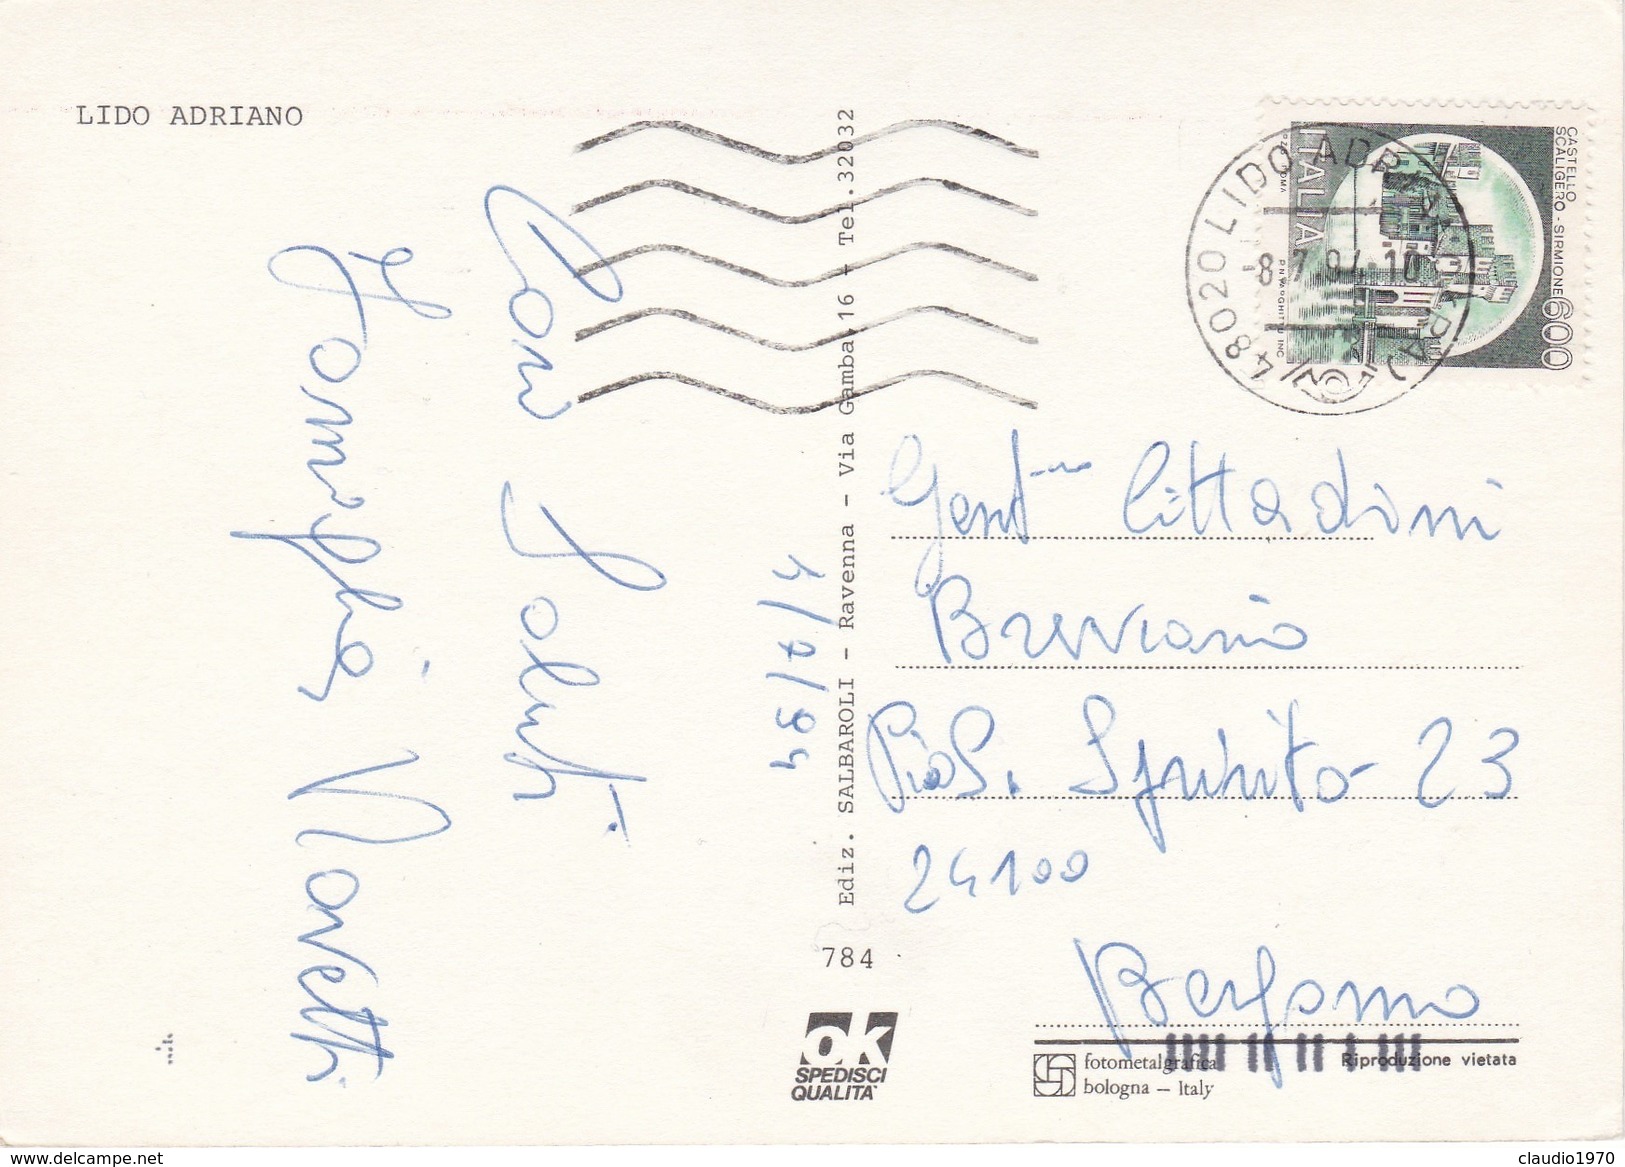 LIDO ADRIANO
Cari Saluti
Famiglia Novetti
4/7/94
Ediz. SALBAROLI - Ravenna - Via Gamba 16 - Tel. 32032
784
OK
SPEDISCI
QUALITA'
CASTELLO
SCALIGERO - SIRMIONE
600
ITALIA
48020 LIDO ADRIANO (RA)
-8.7.94.10
Gent. Cittadini
Breviario
S. Spirito 23
24100
Bergamo
fotometalgrafica
bologna - Italy
Riproduzione vietata
claudio1970
www.delcampe.net